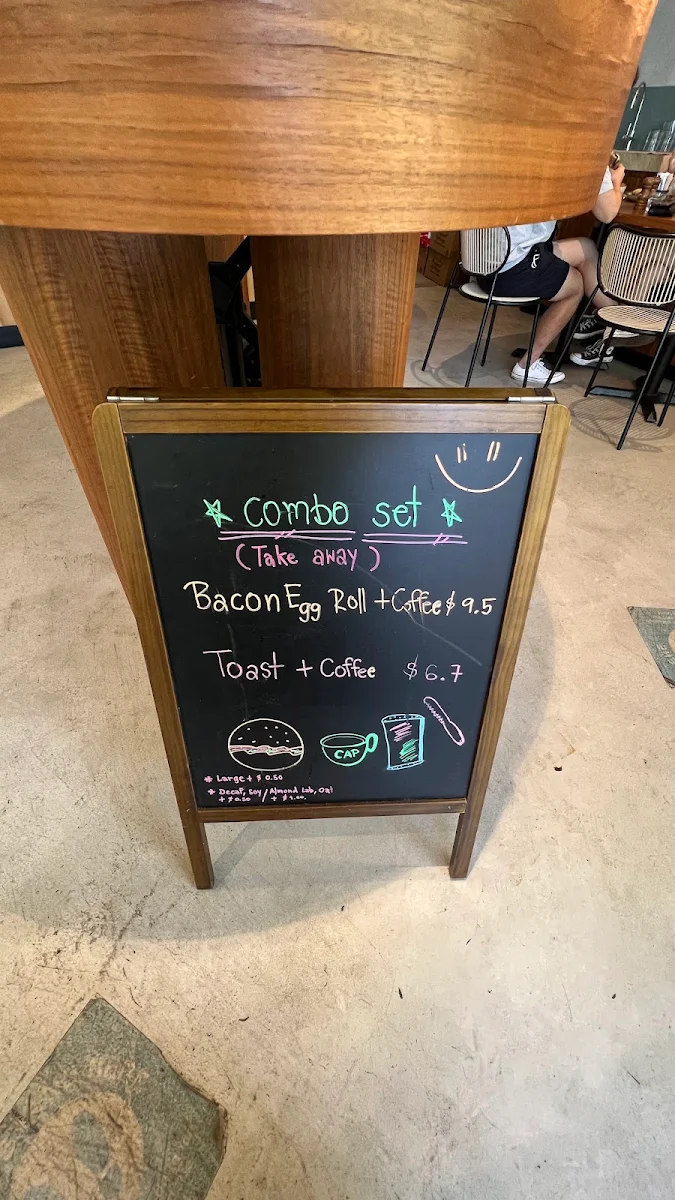 Combo set
(Take away)
Bacon Egg Roll + Coffee $ 9.5
Toast + Coffee $ 6.7
CAP
* Large + $ 0.50
* Decaf, Soy / Almond Lab, Oat
+ $ 0.50 + $ 1.00.